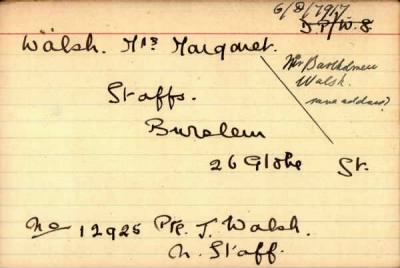 6/8/1917
D P/W.S
Walsh. Mrs Margaret.
Mr Bartholmew
Walsh.
same address?
Staffs.
Burslem
26 Globe St.
No 12925 Pte. J. Walsh.
N. Staff.